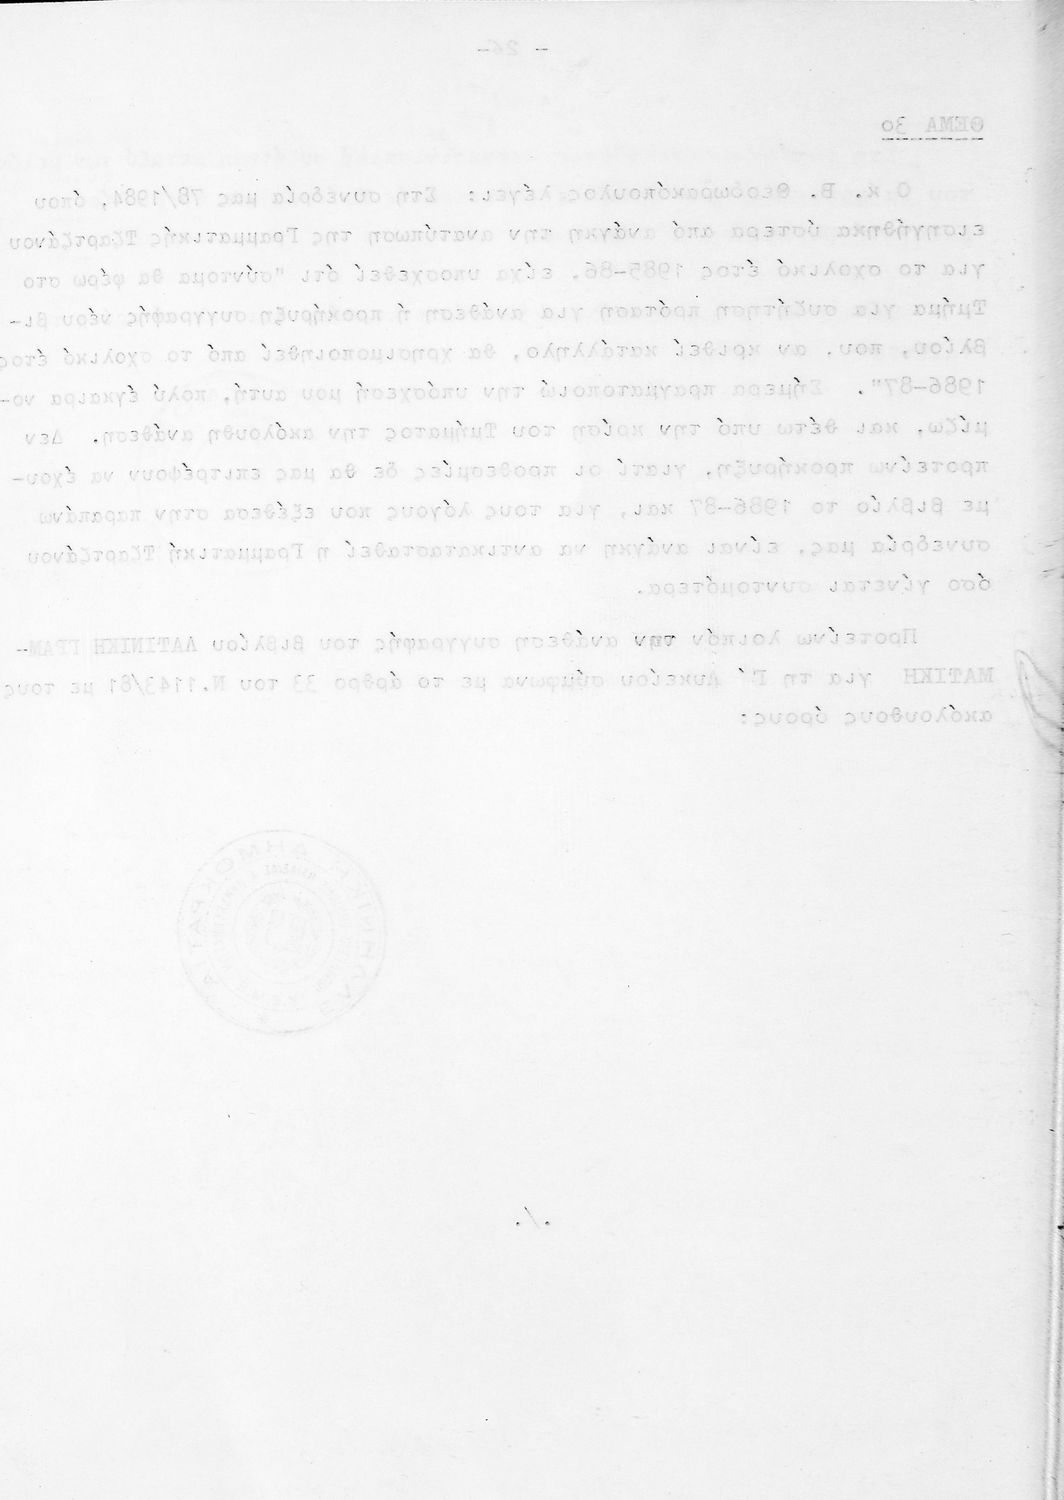 - 26-
ΘΕΜΑ 3ο
Ο κ. Β. Θεοδωρακόπουλος λέγει: Στη συνεδρία μας 78/1984, όπου
εισηγήθηκα ύστερα από ανάγκη την ανατύπωση της Γραμματικής Τζαρτζάνου
για το σχολικό έτος 1985-86, είχα υποσχεθεί ότι "σύντομα θα φέρω στο
Τμήμα για συζήτηση πρόταση για ανάθεση ή προκήρυξη συγγραφής νέου βι-
βλίου, που, αν κριθεί κατάλληλο, θα χρησιμοποιηθεί από το σχολικό έτος
1986-87". Σήμερα πραγματοποιώ την υπόσχεσή μου αυτή, πολύ έγκαιρα νο-
μίζω, και θέτω υπό την κρίση του Τμήματος την ακόλουθη ανάθεση. Δεν
προτείνω προκήρυξη, γιατί οι προθεσμίες δε θα μας επιτρέψουν να έχου-
με βιβλίο το 1986-87 και, για τους λόγους που εξέθεσα στην παραπάνω
συνεδρία μας, είναι ανάγκη να αντικατασταθεί η Γραμματική Τζαρτζάνου
όσο γίνεται συντομότερα.
Προτείνω λοιπόν την ανάθεση συγγραφής του βιβλίου ΛΑΤΙΝΙΚΗ ΓΡΑΜ-
ΜΑΤΙΚΗ για τη Γ΄ Λυκείου σύμφωνα με το άρθρο 33 του Ν.1143/81 με τους
ακόλουθους όρους:
ΕΛΛΗΝΙΚΗ ΔΗΜΟΚΡΑΤΙΑ
./.